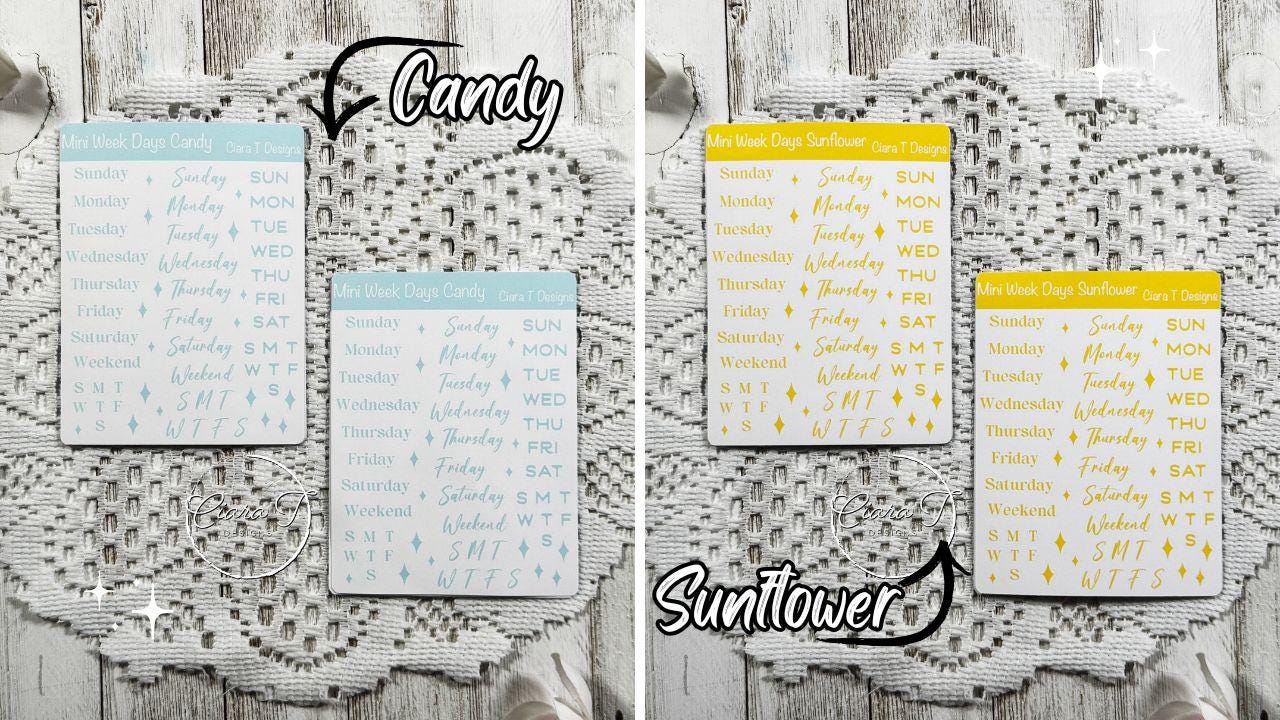 Candy
Mini Week Days Candy
Ciara T Designs
Sunday
Monday
Tuesday
Wednesday
Thursday
Friday
Saturday
Weekend
S M T
W T F
S
Sunday
Monday
Tuesday
Wednesday
Thursday
Friday
Saturday
Weekend
S M T
W T F S
SUN
MON
TUE
WED
THU
FRI
SAT
S M T
W T F
S
Mini Week Days Candy
Ciara T Designs
Sunday
Monday
Tuesday
Wednesday
Thursday
Friday
Saturday
Weekend
S M T
W T F
S
Sunday
Monday
Tuesday
Wednesday
Thursday
Friday
Saturday
Weekend
S M T
W T F S
SUN
MON
TUE
WED
THU
FRI
SAT
S M T
W T F
S
Ciara T
DESIGNS
Mini Week Days Sunflower
Ciara T Designs
Sunday
Monday
Tuesday
Wednesday
Thursday
Friday
Saturday
Weekend
S M T
W T F
S
Sunday
Monday
Tuesday
Wednesday
Thursday
Friday
Saturday
Weekend
S M T
W T F S
SUN
MON
TUE
WED
THU
FRI
SAT
S M T
W T F
S
Mini Week Days Sunflower
Ciara T Designs
Sunday
Monday
Tuesday
Wednesday
Thursday
Friday
Saturday
Weekend
S M T
W T F
S
Sunday
Monday
Tuesday
Wednesday
Thursday
Friday
Saturday
Weekend
S M T
W T F S
SUN
MON
TUE
WED
THU
FRI
SAT
S M T
W T F
S
Ciara T
DESIGNS
Sunflower